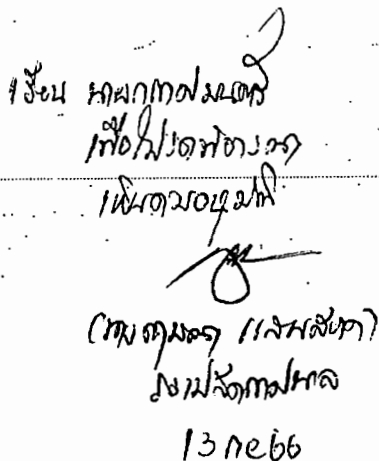 เรียน นายกเทศมนตรี
เพื่อโปรดพิจารณา
เห็นควรอนุมัติ
รองปลัดเทศบาล
13 กย 66